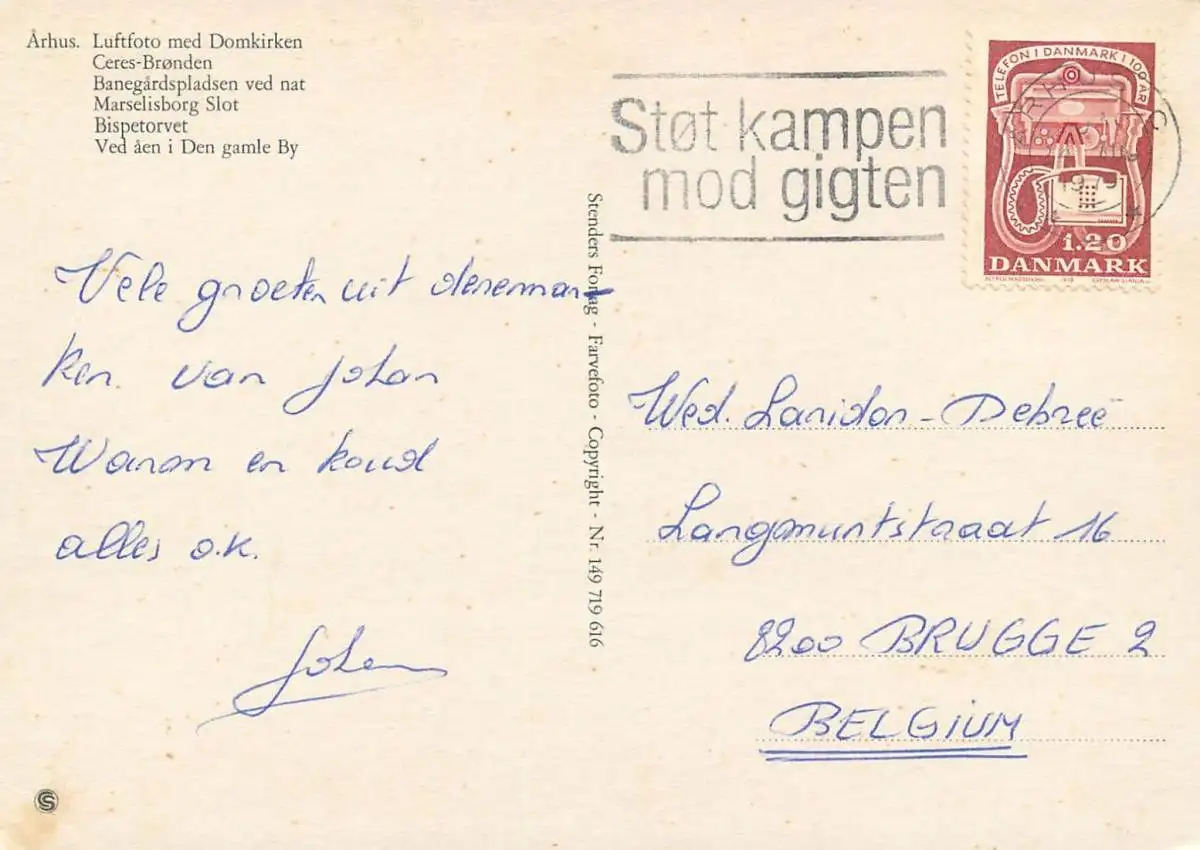 Århus. Luftfoto med Domkirken
Ceres-Brønden
Banegårdspladsen ved nat
Marselisborg Slot
Bispetorvet
Ved åen i Den gamle By
Vele groeten uit denemar-
ken. van Johan
Warm en koud
alles o.k.
Johan
Stenders Forlag - Farvefoto - Copyright - Nr. 149 719 616
Støt kampen
mod gigten
TELEFON I DANMARK I 100 ÅR
1979
1.20
DANMARK
Wed. Laridon - Debreë
Langmuntstraat 16
8200 BRUGGE 2
BELGIUM